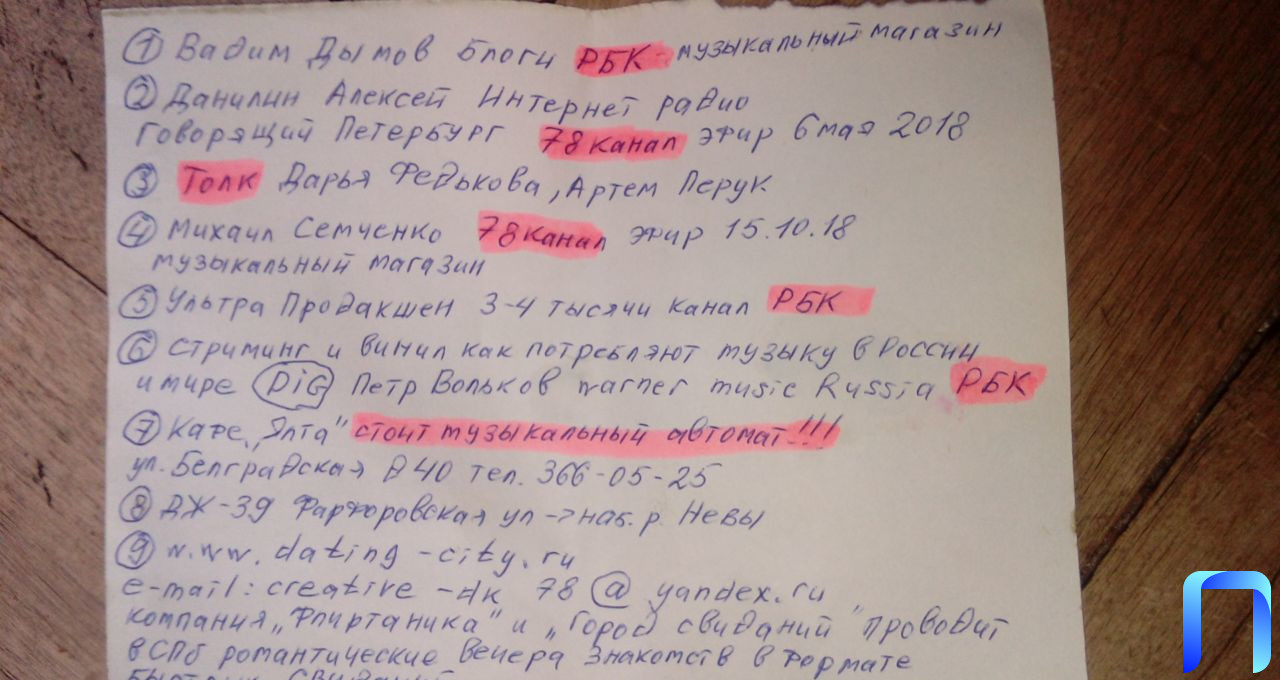 ① Вадим Дымов Блоги РБК - музыкальный магазин
② Данилин Алексей Интернет радио
Говорящий Петербург 78 канал эфир 6 мая 2018
③ Толк Дарья Федькова, Артем Перук
④ Михаил Семченко 78 канал эфир 15.10.18
музыкальный магазин
⑤ Ультра Продакшен 3-4 тысячи канал РБК
⑥ Стриминг и винил как потребляют музыку в России
и мире DiG Петр Вольков warner music Russia РБК
⑦ Кафе „Ялта" стоит музыкальный автомат!!!
ул. Белградская д 40 тел. 366-05-25
⑧ ДЖ-39 Фарфоровская ул -> наб. р. Невы
⑨ www.dating-city.ru
e-mail: creative-dk 78 @ yandex.ru
компания „Флиртаника" и „Город свиданий" проводит
в СПб романтические вечера знакомств в формате
быстрых свиданий